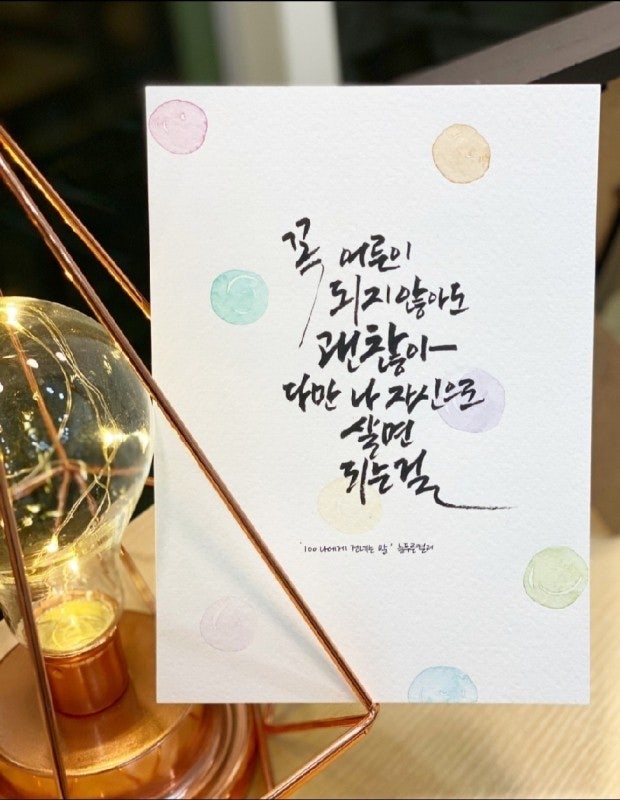 꼭 어른이
되지 않아도
괜찮아
다만 나 자신으로
살면
되는걸
'100 나에게 건네는 말'